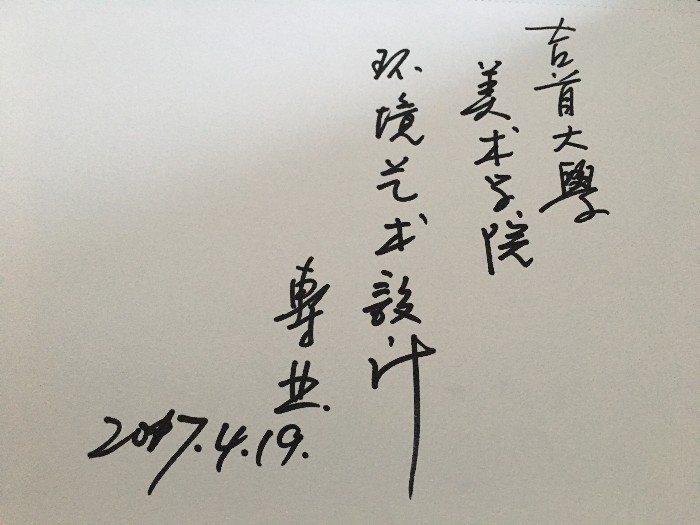 吉首大學
美术学院
环境艺术設计
專业.
2017.4.19.